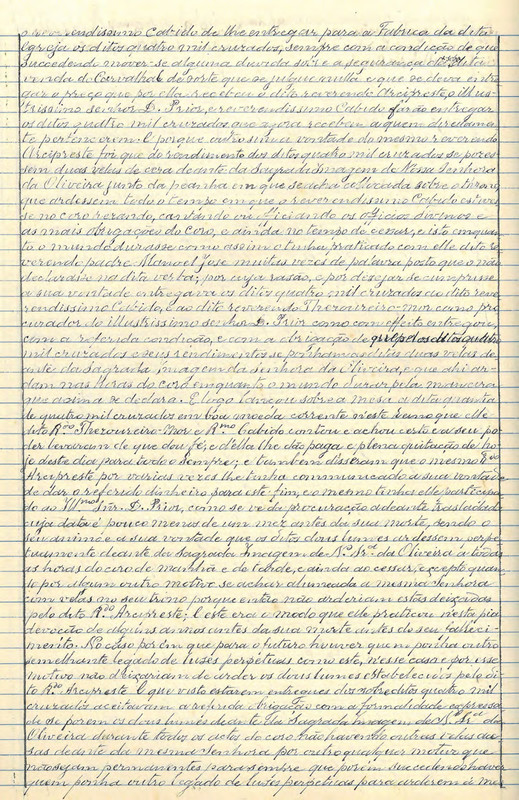 o reverendissimo Cabido de lhe entregar para a Fabrica da dita
Igreja os ditos quatro mil cruzados, sempre com a condição de que
succedendo mover-se alguma duvida sobre a segurança da dita
venda de Carvalhal de sorte que se julgue nulla e que se deva entre
gar o preço que por ella recebeu o dito reverendo Arcipreste, o illus-
trissimo senhor D. Prior, e reverendissimo Cabido farão entregar
os ditos quatro mil cruzados que agora recebem a quem direitamen
te pertencerem. E porque outrosim a vontade do mesmo reverendo
Arcipreste foi que do rendimento dos ditos quatro mil cruzados se pozes
sem duas velas de cera deante da Sagrada Imagem de Nossa Senhora
da Oliveira junto da peanha em que se acha collocada sobre o throno,
que ardessem todo o tempo em que o reverendissimo Cabido estives
se no coro rezando, cantando ou officiando os officios divinos e
as mais obrigações do coro, e ainda no tempo de cessar, e isto emquan
to o mundo durasse como assim o tinha praticado com elle dito re
verendo padre Manoel José muitas vezes de palavra posto que o não
declarasse na dita verba; por cuja rasão, e por desejar se cumprisse
a sua vontade entregava os ditos quatro mil cruzados ao dito reve
rendissimo Cabido, e ao dito reverendo Thesoureiro-mor como pro
curador do illustrissimo senhor D. Prior como com effeito entregou,
com a referida condição, e com a obrigação de que pelos ditos quatro
mil cruzados e seus rendimentos se porham as ditas duas velas de
ante da Sagrada Imagem da Senhora da Oliveira, e que ahi ar-
dam nas Horas do coro emquanto o mundo durar, pela maneira
que assima se declara. E logo lançou sobre a mesa a dita quantia
de quatro mil cruzados em boa moeda corrente n'este reino que elle
dito R.do Thesoureiro-Mor e R.mo Cabido contou e achou certa e a seu po
der levaram de que dou fé, e d'ella lhe dão paga e plena quitação de ho
je deste dia para todo o sempre; e tambem disseram que o mesmo R.do
Arcipreste por varias vezes lhe tinha communicado a sua vontade
de dar o referido dinheiro para este fim, e o mesmo tinha elle participa
do ao Ill.mo Snr. D. Prior, como se vê da procuração adeante trasladada
cuja data é pouco menos de um mez antes da sua morte, sendo o
seu animo e a sua vontade que os ditos dous lumes ardessem perpe
tuamente deante da Sagrada Imagem de N.a Sr.a da Oliveira a todas
as horas do coro de manhã e de tarde, e ainda ao cessar, excepto quan
do por algum outro motivo se achar alumeada a mesma Senhora
com velas no seu trino porque então não arderiam estas deixadas
pelo dito R.do Arcipreste; E este era o modo que elle praticou nesta pia
devoção de alguns annos antes da sua morte antes do seu falleci-
mento. No caso porem que para o futuro houver quem ponha outro
semelhante legado de luses perpetuas como este, n'esse caso e por esse
motivo não deixariam de arder os dous lumes estabelecidos pelo di
to R.do Arcipreste. E que visto estarem entregues dos sobreditos quatro mil
cruzados aceitavam a referida obrigação com a formalidade expressa
da de porem os dous lumes deante da Sagrada Imagem de N. Sr.a da
Oliveira durante todos os actos do coro não havendo outras velas ace
sas deante da mesma Senhora por outro qualquer motivo que
não sejam permanentes para sempre que porem succedendo haver
quem ponha outro legado de luses perpetuas para arderem á mes